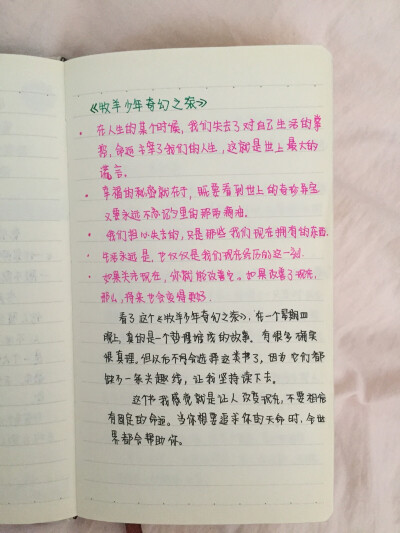 《牧羊少年奇幻之旅》
· 在人生的某个时候，我们失去了对自己生活的掌
控，命运主宰了我们的人生，这就是世上最大的
谎言。
· 幸福的秘密就在于，既要看到世上的奇珍异宝
又要永远不忘记勺里的那两滴油。
· 我们担心失去的，只是那些我们现在拥有的东西.
· 生活永远是，也仅仅是我们现在经历的这一刻.
· 如果关注现在，你就能改善它。如果改善了现在，
那么，将来也会变得更好.
看了这个《牧羊少年奇幻之旅》，在一个星期四
晚上，真的是一个的故事。有很多确实
很真理。但以后不会选择这类书了，因为它们都
缺少一条兴趣线，让我坚持读下去。
这个书我感觉就是让人改变现在，不要相信
有固定的命运。当你想要追求你的天命时，全世
界都会帮助你。